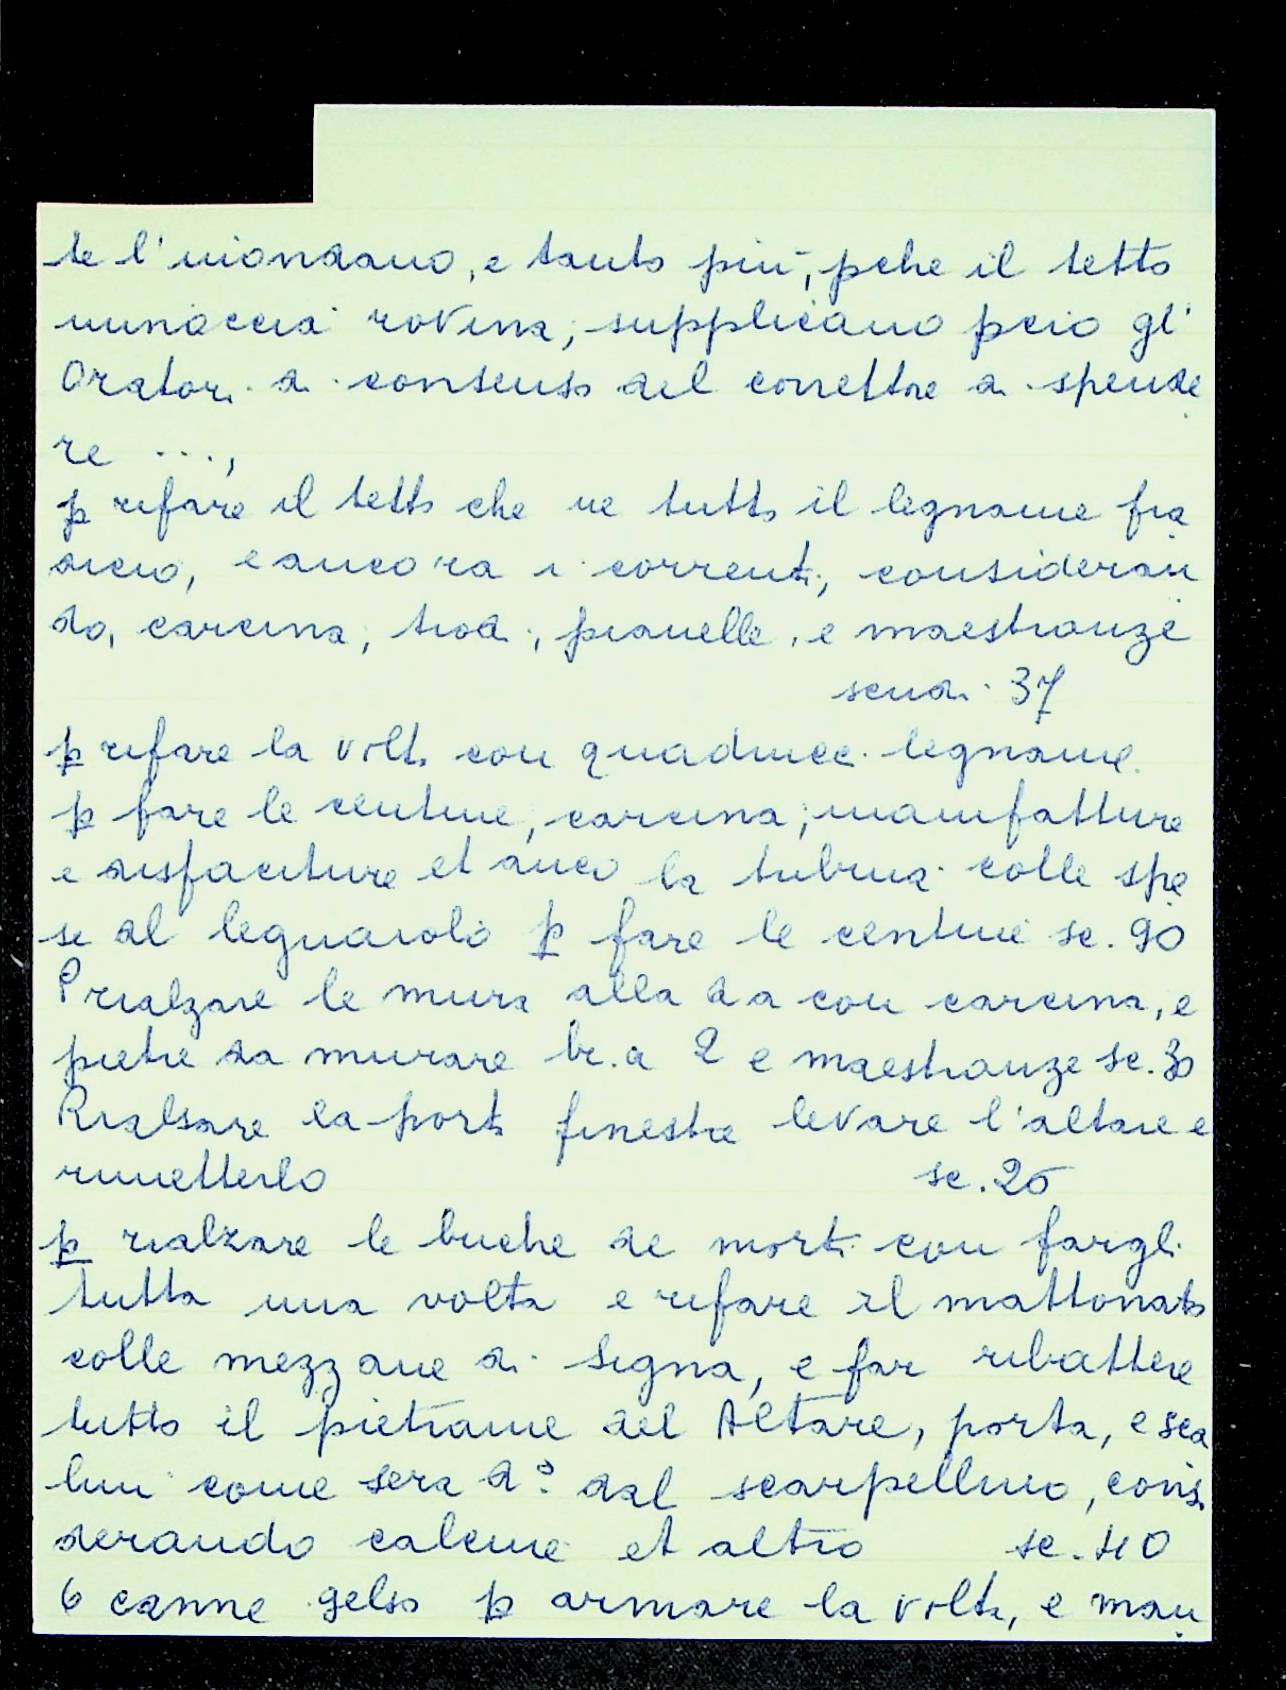 te l'inondano, e tanto più, pche il tetto
minaccia rovina; supplicano pciò gl'
Oratori di consenso del correttore di spende
re ...,
p rifare il tetto che ve tutto il legname fra
dicio, e ancora i correnti, consideran
do, carcina, travi, pianelle, e maestranze
scudi 37
p rifare la volta con quadrucci legname
p fare le centine, carcina, manifatture
e disfaciture et anco la tribuna colle spe
se al legnaiolo p fare le centine sc. 90
P rialzare le mura alla da con carcina, e
pietre da murare br.a 2 e maestranze sc. 30
Rialsare la porta finestre levare l'altare e
rimetterlo sc. 25
p rialzare le buche de morti con fargli
tutta una volta e rifare il mattonato
colle mezzane di Signa, e far ribattere
tutto il pietrame del Altare, porta, e sca
lini come sera d:° dal scarpellino, consi
derando calcine et altro sc. 40
6 canne gelso p armare la volta, e man